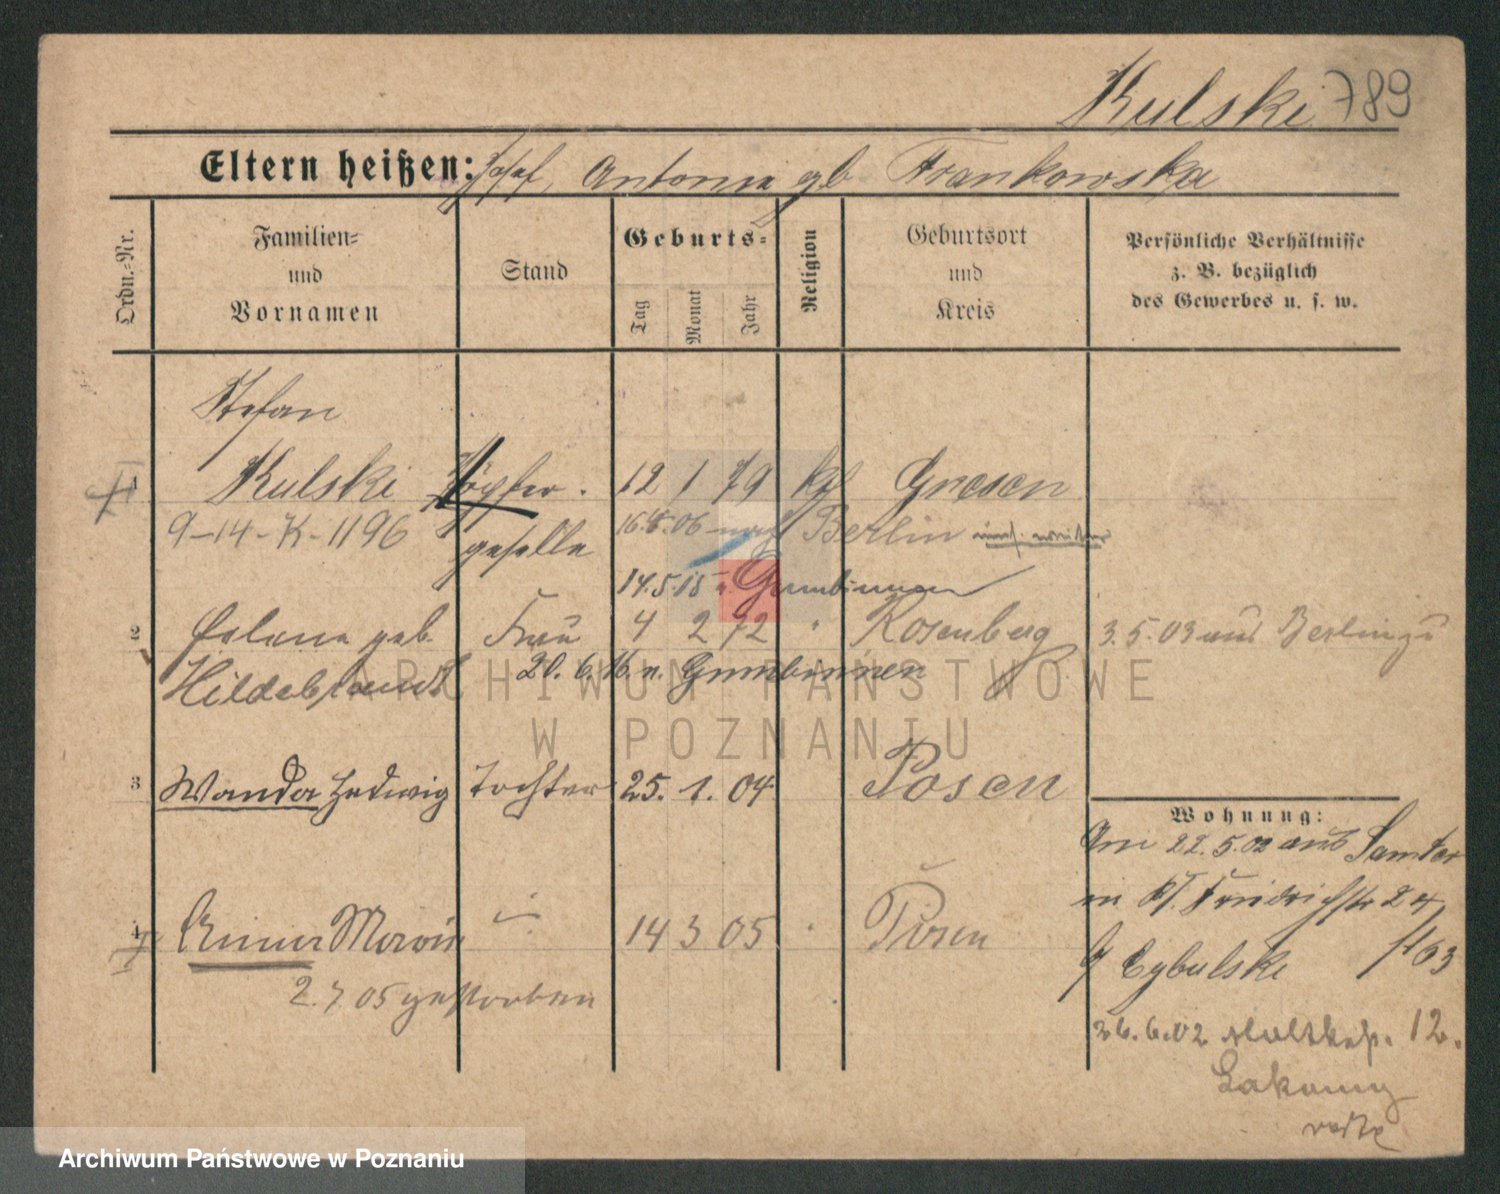 Kulski 789
Eltern heißen: Josef, Antonie gb Frankowska
Ordn.-Nr.
Familien-
und
Vornamen
Stand
Geburts-
Tag
Monat
Jahr
Religion
Geburtsort
und
Kreis
Persönliche Verhältnisse
z. B. bezüglich
des Gewerbes u. s. w.
Stefan
1 Kulski Töpfer 12 1 79 kf Gnesen
9-14-K-1196 geselle 16.5.06 nach Berlin
14.5.15 n. Gumbinnen
2 Helene geb. Frau 4 2 72 " Rosenberg 3.5.03 aus Berlin zu
Hildebrandt 20.6.16 n. Gumbinnen
3 Wanda Hedwig Tochter 25. 1. 04 Posen
Wohnung:
Am 22.5.02 aus Samter
in Friedrichstr 24
4 Maria 14 3 05 " Posen
Cybulski
2.7.05 gestorben
26.6.02 12.
ARCHIWUM PAŃSTWOWE
W POZNANIU
Archiwum Państwowe w Poznaniu